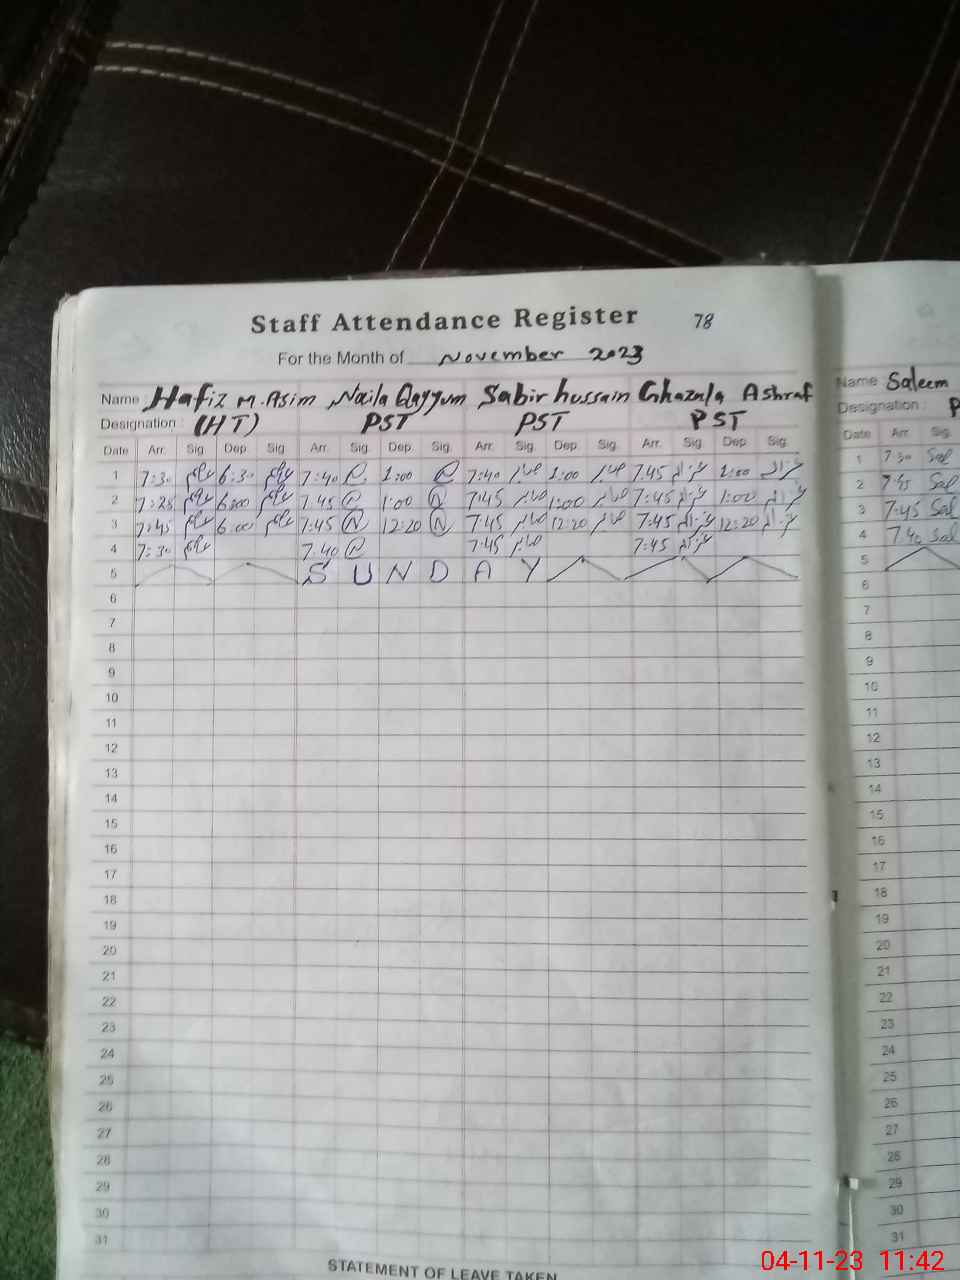 Staff Attendance Register 78
For the Month of November 2023
Name Hafiz M. Asim Naila Qayyum Sabir hussain Ghazala Ashraf
Designation : (HT) PST PST PST
Date Arr. Sig. Dep. Sig. Arr. Sig. Dep. Sig. Arr. Sig. Dep. Sig. Arr. Sig. Dep. Sig.
1 7:30 6:30 7:40 N 1:00 N 7:40 صابر 1:00 صابر 7:45 غزالہ 1:00 غزالہ
2 7:25 6:00 7:45 N 1:00 N 7:45 صابر 1:00 صابر 7:45 غزالہ 1:00 غزالہ
3 7:45 6:00 7:45 N 12:20 N 7:45 صابر 12:20 صابر 7:45 غزالہ 12:20 غزالہ
4 7:30 7:40 N 7:45 صابر 7:45 غزالہ
5 S U N D A Y
6
7
8
9
10
11
12
13
14
15
16
17
18
19
20
21
22
23
24
25
26
27
28
29
30
31
STATEMENT OF LEAVE TAKEN
Name Saleem
Designation : P
Date Arr. Sig.
1 7:30 Sal
2 7:45 Sal
3 7:45 Sal
4 7:40 Sal
5
6
7
8
9
10
11
12
13
14
15
16
17
18
19
20
21
22
23
24
25
26
27
28
29
30
31
04-11-23 11:42